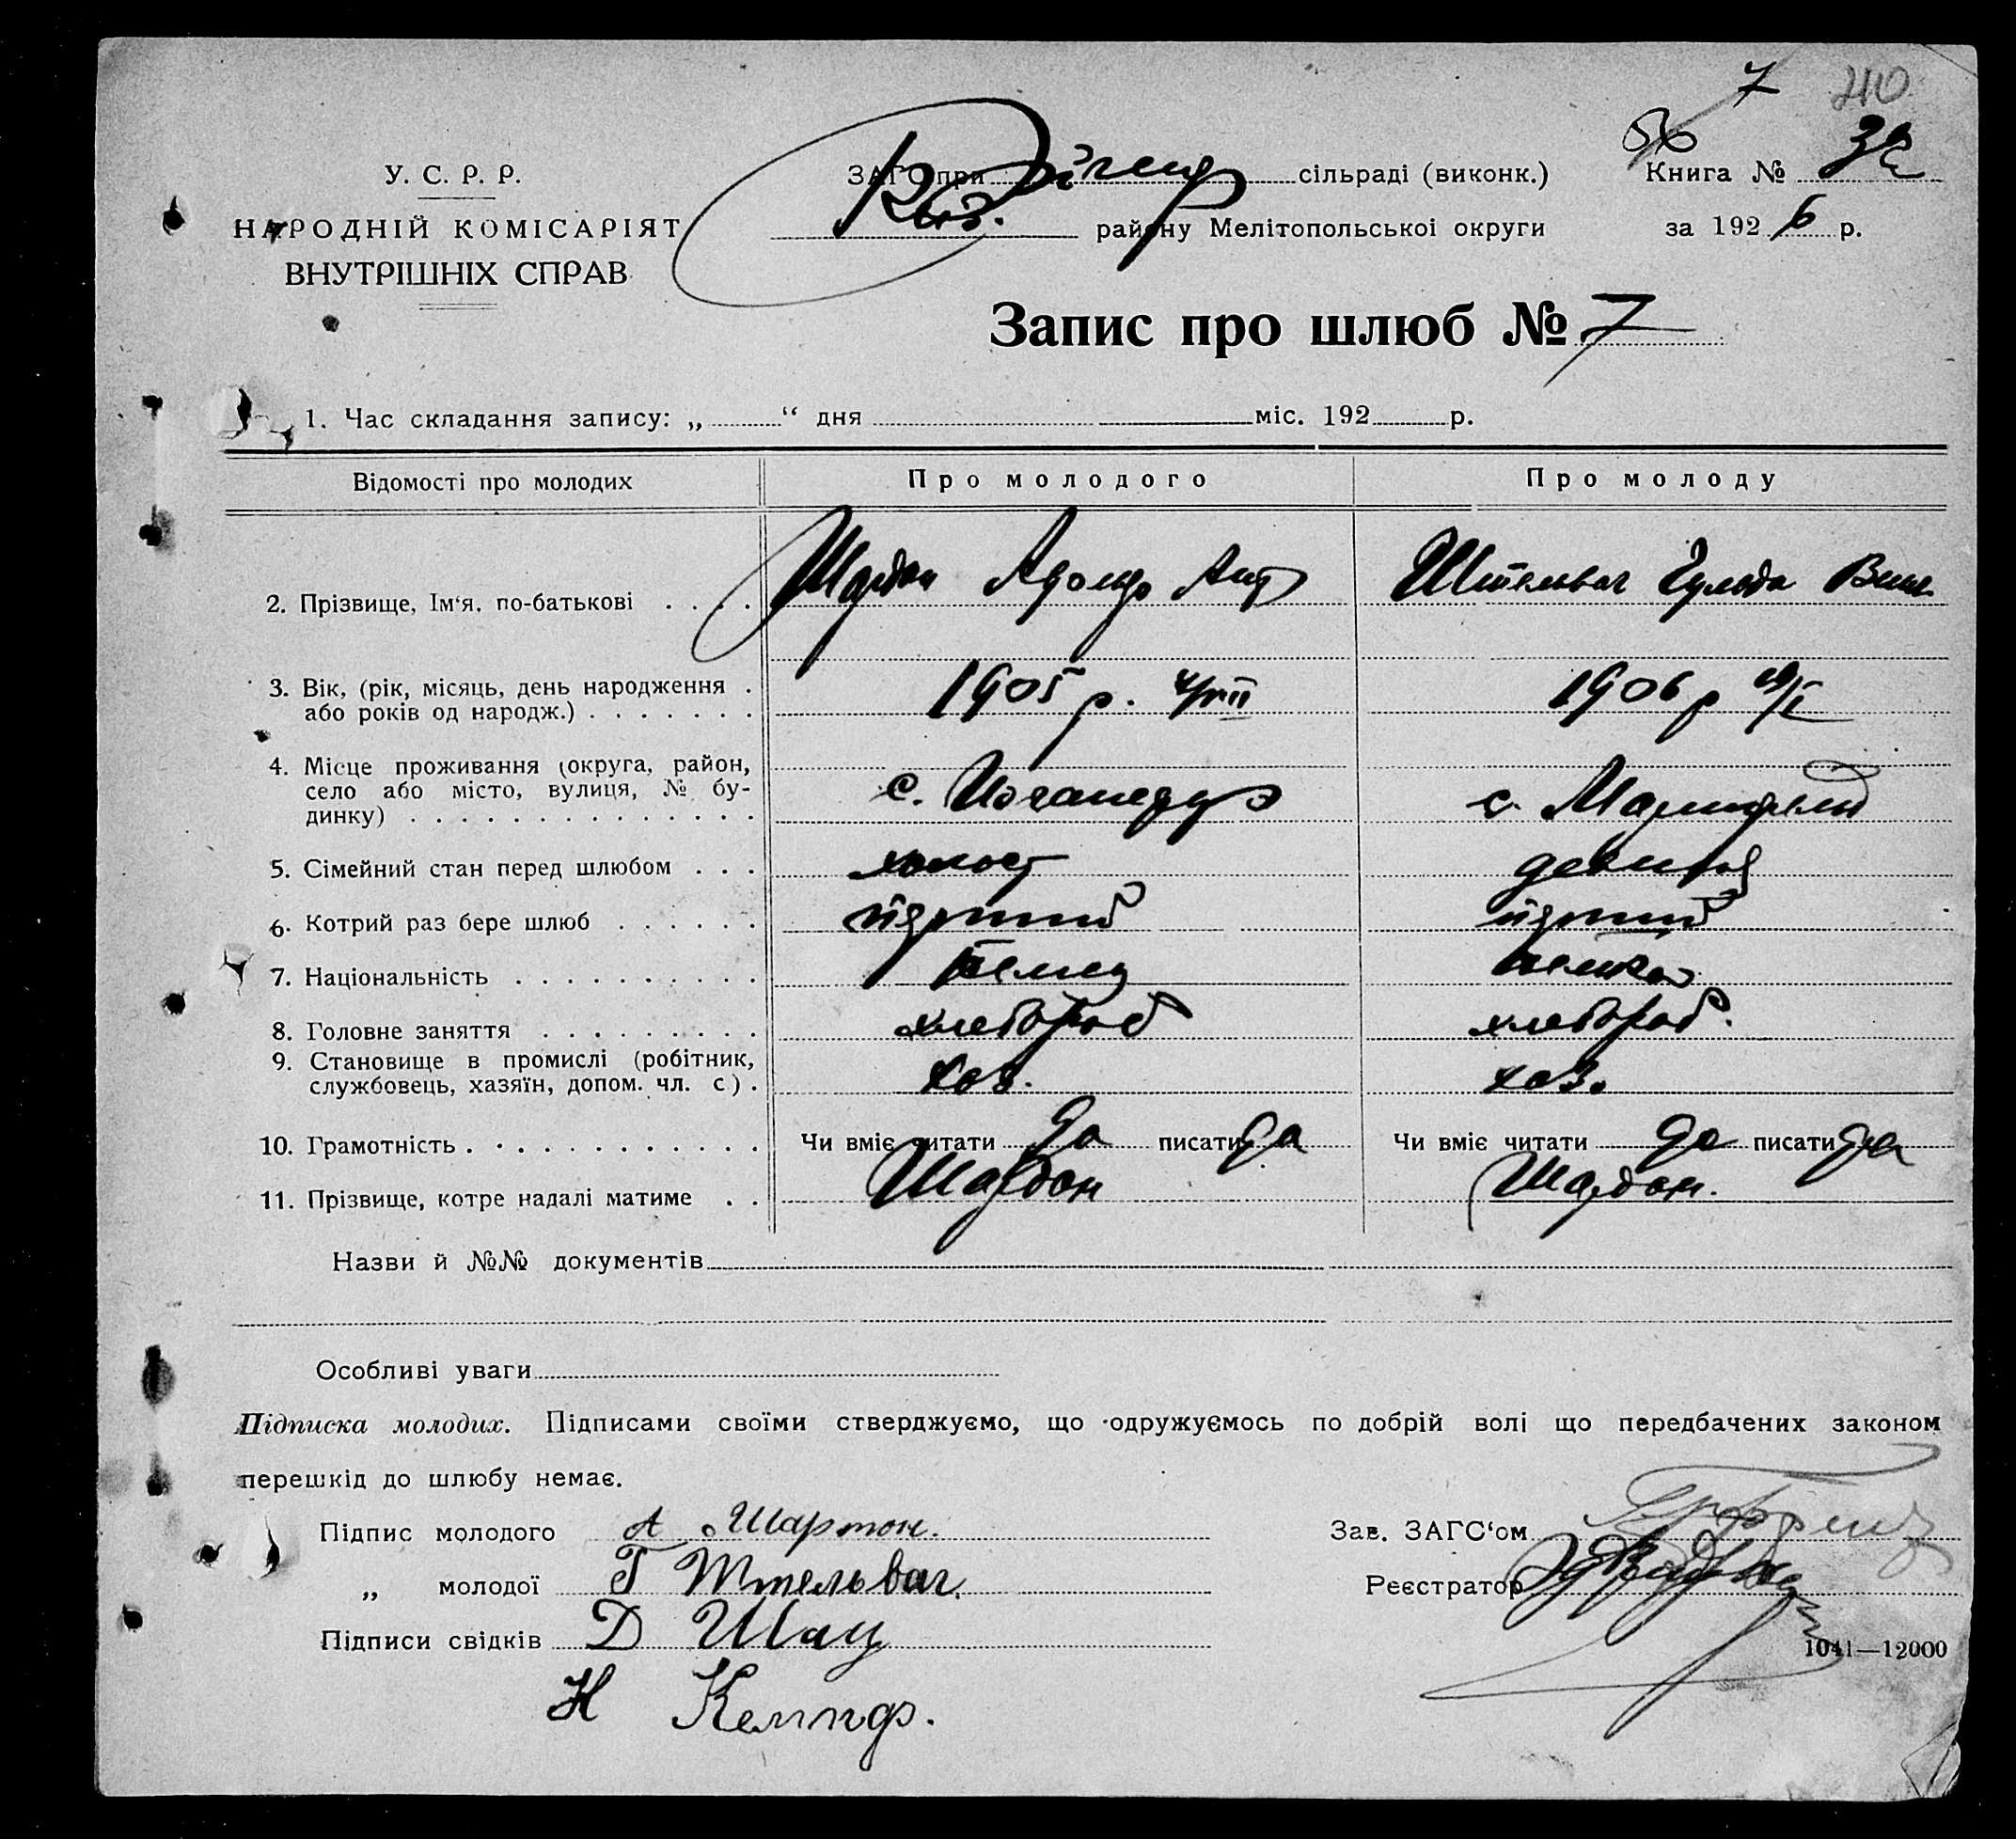 7 40
56
У. С. Р. Р. ЗАГС при сільраді (виконк.) Книга №
НАРОДНІЙ КОМІСАРІЯТ району Мелітопольськоі округи за 1926 р.
ВНУТРІШНІХ СПРАВ
Запис про шлюб № 7
1. Час складання запису: „ “ дня міс. 192 р.
Відомості про молодих Про молодого Про молоду
2. Прізвище, Ім‘я, по-батькові Шардон Адольф Штельваг Гульда
3. Вік, (рік, місяць, день народження 1905 р. 1906 р
або років од народж.)
4. Місце проживання (округа, район,
село або місто, вулиця, № бу- с. с.
динку)
5. Сімейний стан перед шлюбом холост девица
6. Котрий раз бере шлюб первий первий
7. Національність немец немка
8. Головне заняття хлебороб хлебороб.
9. Становище в промислі (робітник,
службовець, хазяїн, допом. чл. с) хоз. хоз.
10. Грамотність Чи вміє читати да писати да Чи вміє читати да писати да
11. Прізвище, котре надалі матиме Шардон Шардон.
Назви й №№ документів
Особливі уваги
Підписка молодих. Підписами своїми стверджуємо, що одружуємось по добрій волі що передбачених законом
перешкід до шлюбу немає.
Підпис молодого А Шартон. Зав. ЗАГС‘ом
„ молодої Г Штельваг. Реєстратор
Підписи свідків Д Шац
1041—12000
Н Кемпф.